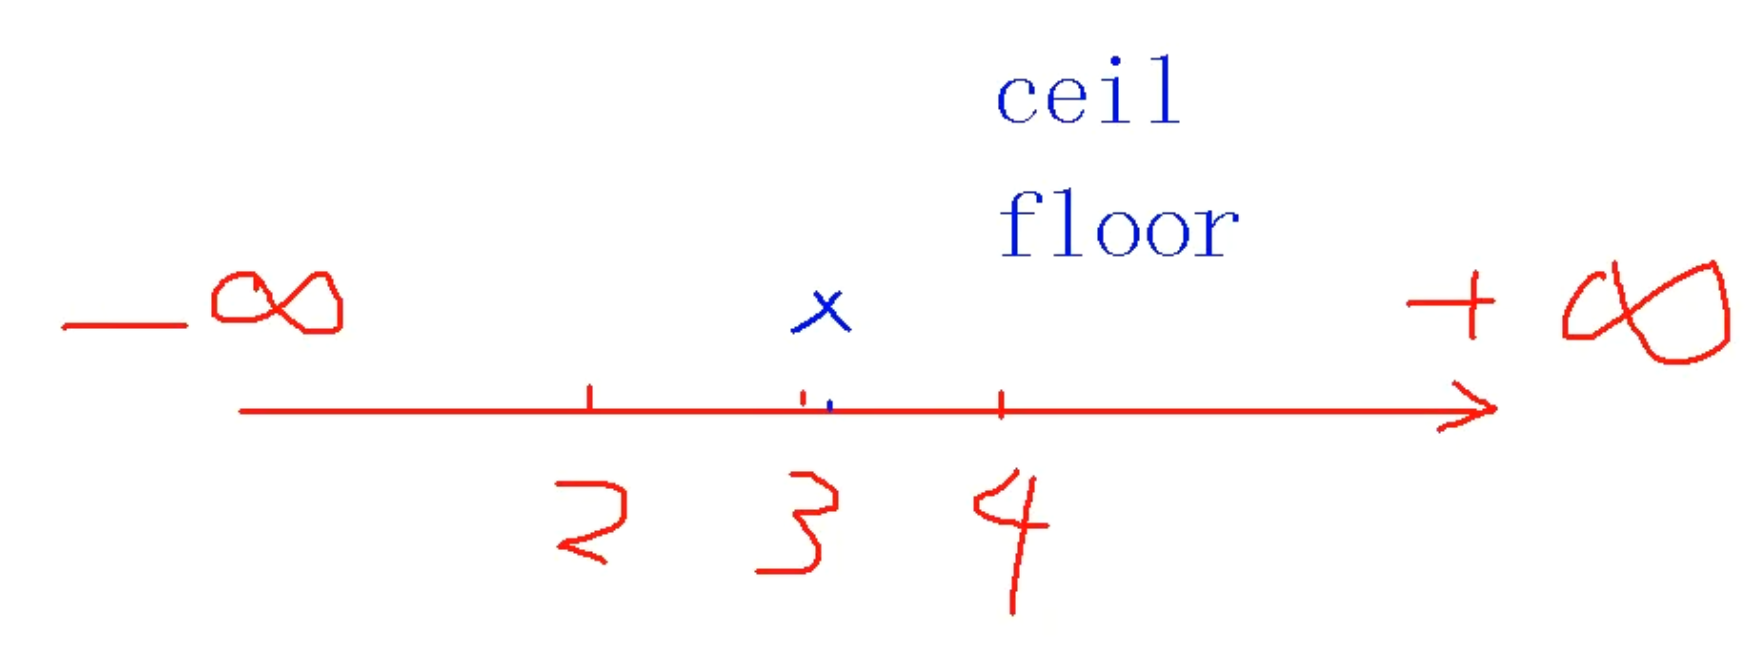 ceil
floor
— ∞ x + ∞
2 3 4